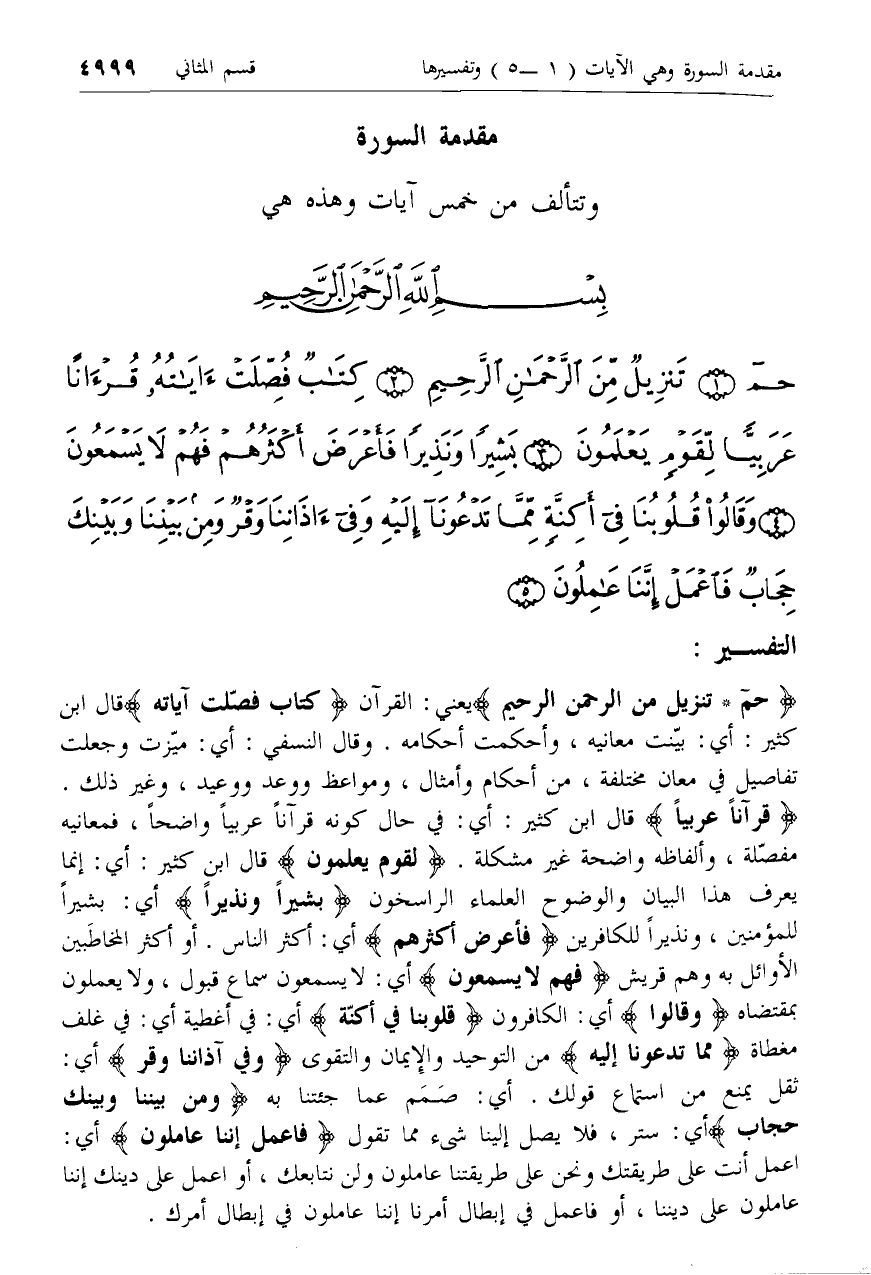 مقدمة السورة وهي الآيات ( ١ – ٥ ) وتفسيرها قسم المثاني ٤٩٩٩
مقدمة السورة
وتتألف من خمس آيات وهذه هي
بِسْمِ اللَّهِ الرَّحْمَٰنِ الرَّحِيمِ
حمٓ ۝١ تَنزِيلٌ مِّنَ ٱلرَّحْمَٰنِ ٱلرَّحِيمِ ۝٢ كِتَٰبٌ فُصِّلَتْ ءَايَٰتُهُۥ قُرْءَانًا
عَرَبِيًّا لِّقَوْمٍ يَعْلَمُونَ ۝٣ بَشِيرًا وَنَذِيرًا فَأَعْرَضَ أَكْثَرُهُمْ فَهُمْ لَا يَسْمَعُونَ
۝٤ وَقَالُوا۟ قُلُوبُنَا فِىٓ أَكِنَّةٍ مِّمَّا تَدْعُونَآ إِلَيْهِ وَفِىٓ ءَاذَانِنَا وَقْرٌ وَمِنۢ بَيْنِنَا وَبَيْنِكَ
حِجَابٌ فَٱعْمَلْ إِنَّنَا عَٰمِلُونَ ۝٥
التفسير :
﴿ حمٓ * تنزيل من الرحمن الرحيم ﴾ يعني : القرآن ﴿ كتاب فصّلت آياته ﴾ قال ابن
كثير : أي : بيّنت معانيه ، وأحكمت أحكامه . وقال النسفي : أي : ميّزت وجعلت
تفاصيل في معان مختلفة ، من أحكام وأمثال ، ومواعظ ووعد ووعيد ، وغير ذلك .
﴿ قرآناً عربياً ﴾ قال ابن كثير : أي : في حال كونه قرآناً عربياً واضحاً ، فمعانيه
مفصّلة ، وألفاظه واضحة غير مشكلة . ﴿ لقوم يعلمون ﴾ قال ابن كثير : أي : إنما
يعرف هذا البيان والوضوح العلماء الراسخون ﴿ بشيراً ونذيراً ﴾ أي : بشيراً
للمؤمنين ، ونذيراً للكافرين ﴿ فأعرض أكثرهم ﴾ أي : أكثر الناس . أو أكثر المخاطَبين
الأوائل به وهم قريش ﴿ فهم لا يسمعون ﴾ أي : لا يسمعون سماع قبول ، ولا يعملون
بمقتضاه ﴿ وقالوا ﴾ أي : الكافرون ﴿ قلوبنا في أكنّة ﴾ أي : في أغطية أي : في غلف
مغطاة ﴿ مما تدعونا إليه ﴾ من التوحيد والإيمان والتقوى ﴿ وفي آذاننا وقر ﴾ أي :
ثقل يمنع من استماع قولك . أي : صَمَم عما جئتنا به ﴿ ومن بيننا وبينك
حجاب ﴾ أي : ستر ، فلا يصل إلينا شىء مما تقول ﴿ فاعمل إننا عاملون ﴾ أي :
اعمل أنت على طريقتك ونحن على طريقتنا عاملون ولن نتابعك ، أو اعمل على دينك إننا
عاملون على ديننا ، أو فاعمل في إبطال أمرنا إننا عاملون في إبطال أمرك .